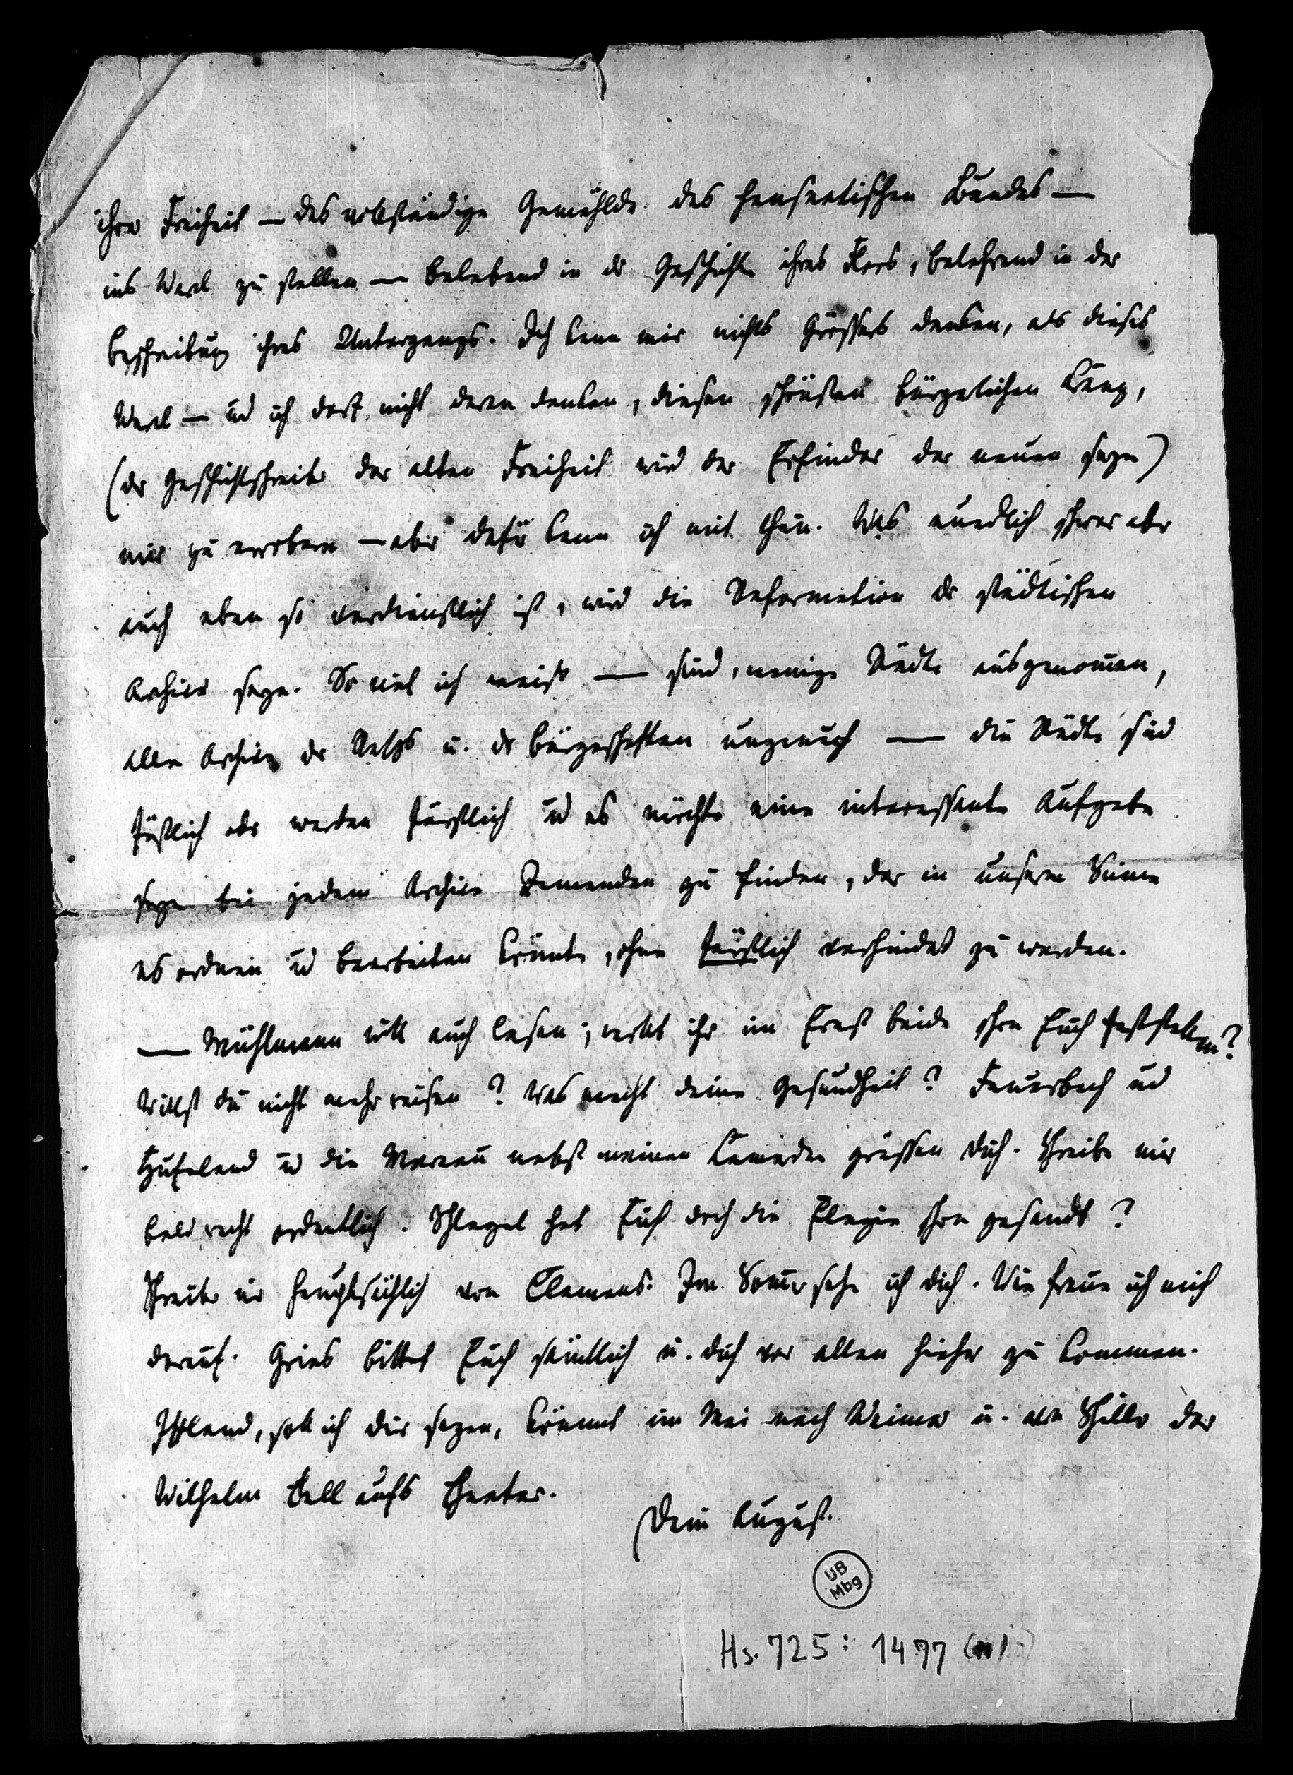 ihrer Freiheit — das vollständige Gemählde des hanseatischen Bundes —
ins Werk zu stellen — belebend in der Geschichte ihres Flors, belehrend in der
Beschreibung ihres Untergangs. Ich kann mir nichts Grösseres denken, als dieses
Werk — und ich darf nicht daran denken, diesen schönsten bürgerlichen Kranz,
(der Geschichtschreiber der alten Freiheit wird der Erfinder der neuen seyn)
mir zu erwerben — aber dafür kann ich mit thun. Was unendlich schwer aber
auch eben so verdienstlich ist, wird die Reformation der städtischen
Archive seyn. So viel ich weiß — sind, wenige Städte ausgenommen,
alle Archive der Raths u. der Bürgerschaften — die Städte sind
fürstlich oder werden fürstlich und es möchte eine interessante Aufgabe
seyn bei jedem Archive Jemanden zu finden, der in unserem Sinne
es ordnen und bearbeiten könnte, ohne fürstlich verhindert zu werden.
— Mühlmann will auch lesen; wollt ihr im Ernst beide schon Euch festsetzen?
Willst du nicht mehr reisen? Was macht deine Gesundheit? Feuerbach und
Hufeland und die Mereau nebst meinen grüssen dich. Schreibe mir
bald recht ordentlich. Schlegel hat Euch doch die Elegie schon gesandt?
Schreibe mir hauptsächlich von Clemens. Im Sommer sehe ich dich. Wie freue ich mich
darauf. Gries bittet Euch sämtlich u. dich vor allen hieher zu kommen.
Iffland, soll ich dir sagen, kömmt im Mai nach Weimar u. von Schiller der
Wilhelm Tell aufs Theater.
Dein August.
UB
Mbg
Hs. 725: 1477